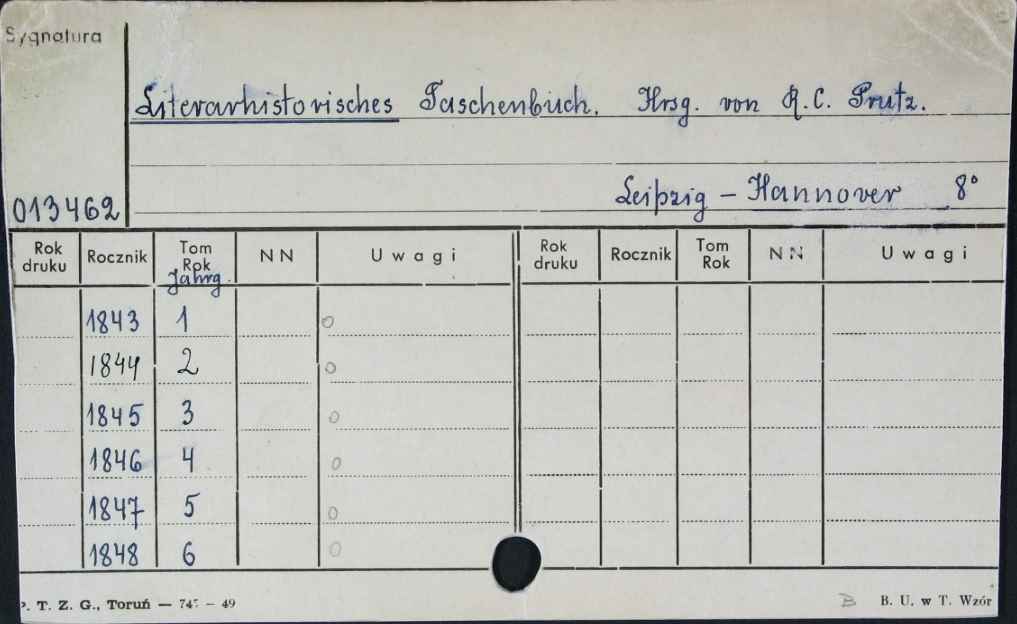 Sygnatura
Literarhistorisches Taschenbuch. Hrsg. von R. C. Prutz.
013462 Leipzig – Hannover 8°
Rok druku Rocznik Tom Rok Jahrg. NN Uwagi Rok druku Rocznik Tom Rok NN Uwagi
1843 1 0
1844 2 0
1845 3 0
1846 4 0
1847 5 0
1848 6 0
P. T. Z. G., Toruń — – 49 B B. U. w T. Wzór